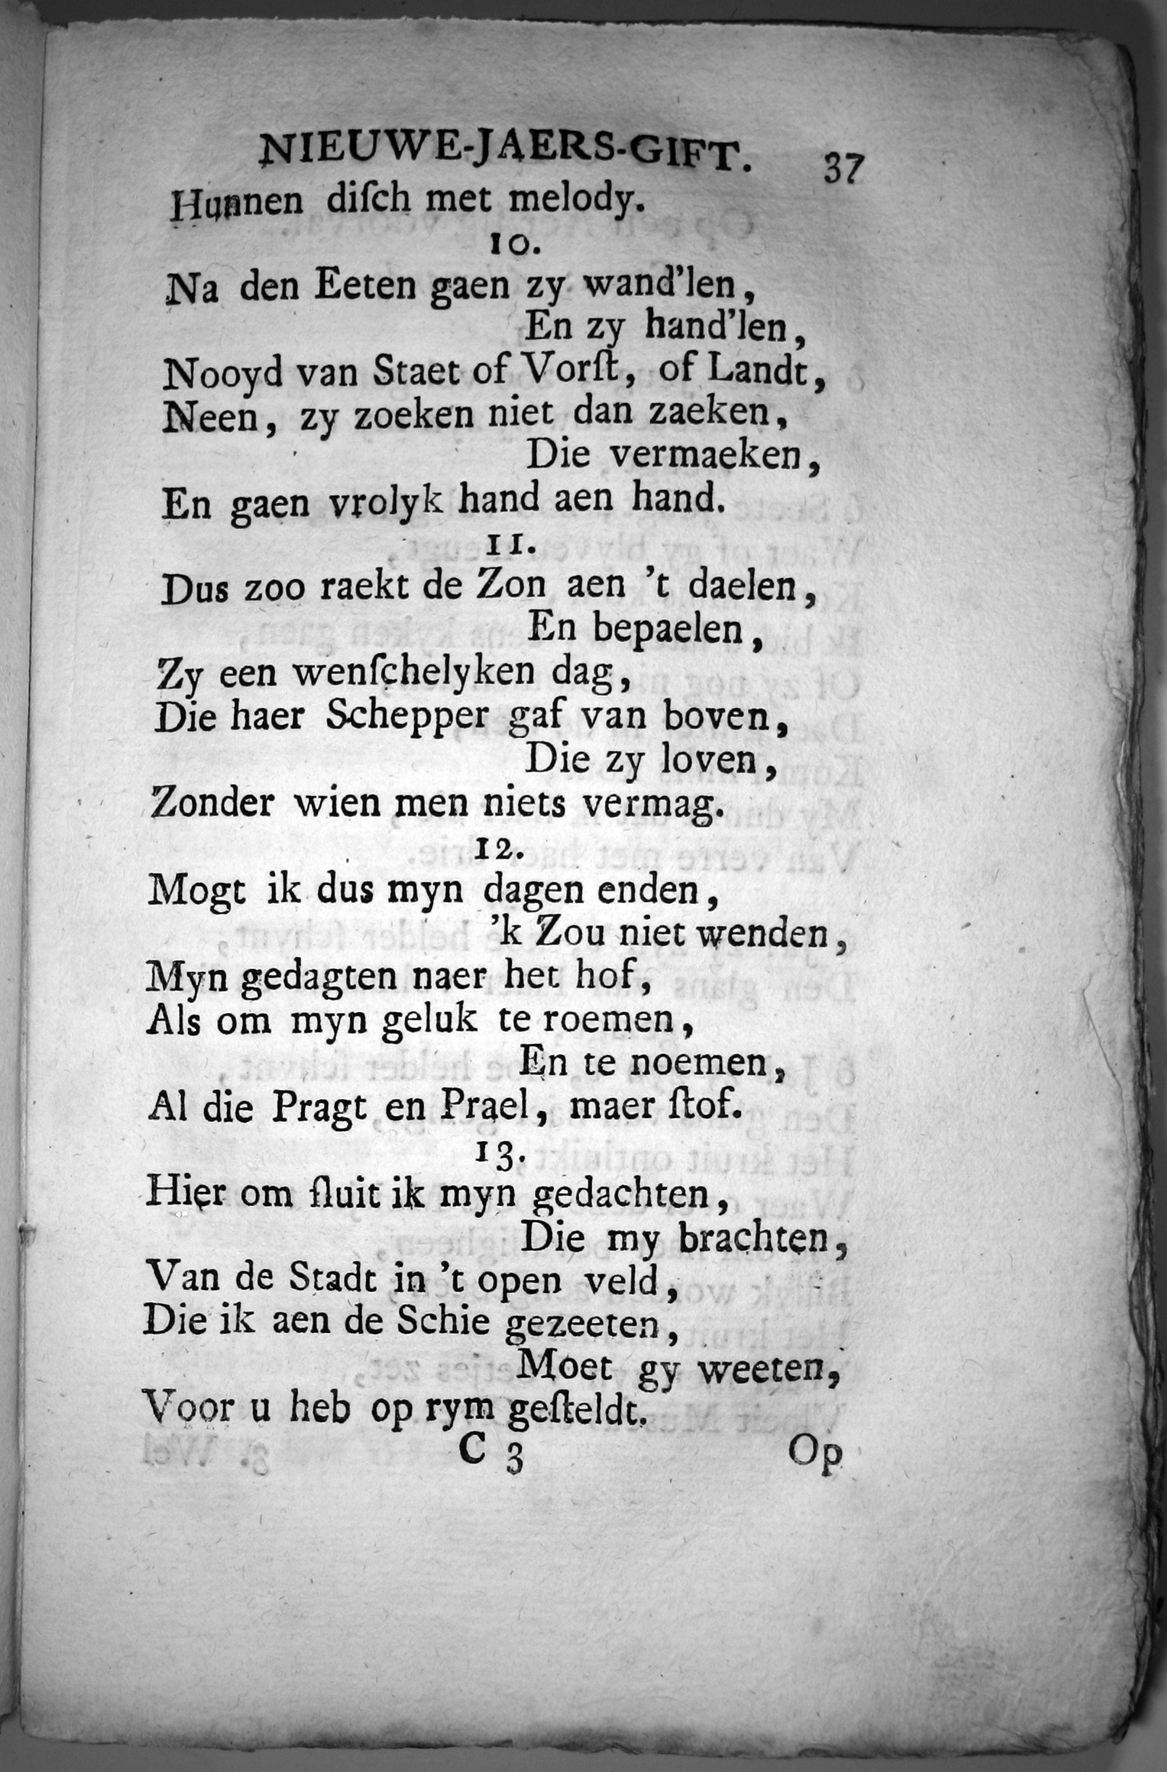 NIEUWE-JAERS-GIFT. 37
Hunnen diſch met melody.
10.
Na den Eeten gaen zy wand'len,
En zy hand'len,
Nooyd van Staet of Vorſt, of Landt,
Neen, zy zoeken niet dan zaeken,
Die vermaeken,
En gaen vrolyk hand aen hand.
11.
Dus zoo raekt de Zon aen 't daelen,
En bepaelen,
Zy een wenſchelyken dag,
Die haer Schepper gaf van boven,
Die zy loven,
Zonder wien men niets vermag.
12.
Mogt ik dus myn dagen enden,
'k Zou niet wenden,
Myn gedagten naer het hof,
Als om myn geluk te roemen,
En te noemen,
Al die Pragt en Prael, maer ſtof.
13.
Hier om ſluit ik myn gedachten,
Die my brachten,
Van de Stadt in 't open veld,
Die ik aen de Schie gezeeten,
Moet gy weeten,
Voor u heb op rym geſteldt.
C 3 Op